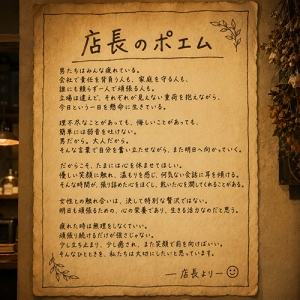 店長のポエム
男たちはみんな疲れている。
会社で責任を背負う人も、家庭を守る人も、
誰にも頼らず一人で頑張る人も。
立場は違えど、それぞれが見えない重荷を抱えながら、
今日という一日を懸命に生きている。
理不尽なことがあっても、悔しいことがあっても、
簡単には弱音を吐けない。
男だから。大人だから。
そんな言葉で自分を奮い立たせながら、また明日へ向かっていく。
だからこそ、たまには心を休ませてほしい。
優しい笑顔に触れ、温もりを感じ、何気ない会話に耳を傾ける。
そんな時間が、張り詰めた心をほぐし、乾いた心を潤してくれることがある。
女性との触れ合いは、決して特別な贅沢ではない。
明日も頑張るための、心の栄養であり、生きる活力なのだと思う。
疲れた時は無理をしなくていい。
頑張り続けるだけが強さじゃない。
少し立ち止まり、少し癒され、また笑顔で前を向けばいい。
そんなひとときを、私たちは大切にしたいと思っています。
― 店長より ―